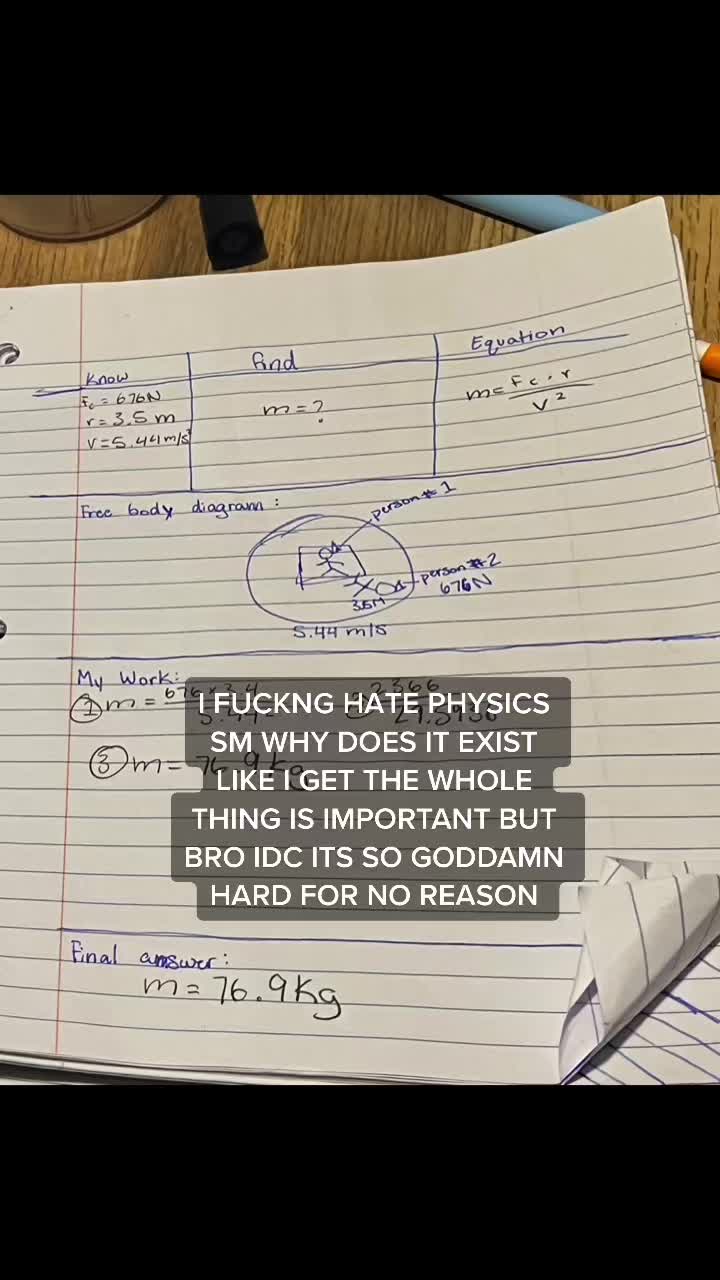 Know
Find
Equation
Fc = 676N
r = 3.5 m
V = 5.44 m/s
m = ?
m = Fc · r
V²
Free body diagram :
person # 1
person # 2
676N
3.5M
5.44 m/s
My Work:
① m =
② 2366
③ m = 76.9 kg
I FUCKNG HATE PHYSICS
SM WHY DOES IT EXIST
LIKE I GET THE WHOLE
THING IS IMPORTANT BUT
BRO IDC ITS SO GODDAMN
HARD FOR NO REASON
Final answer:
m = 76.9 Kg